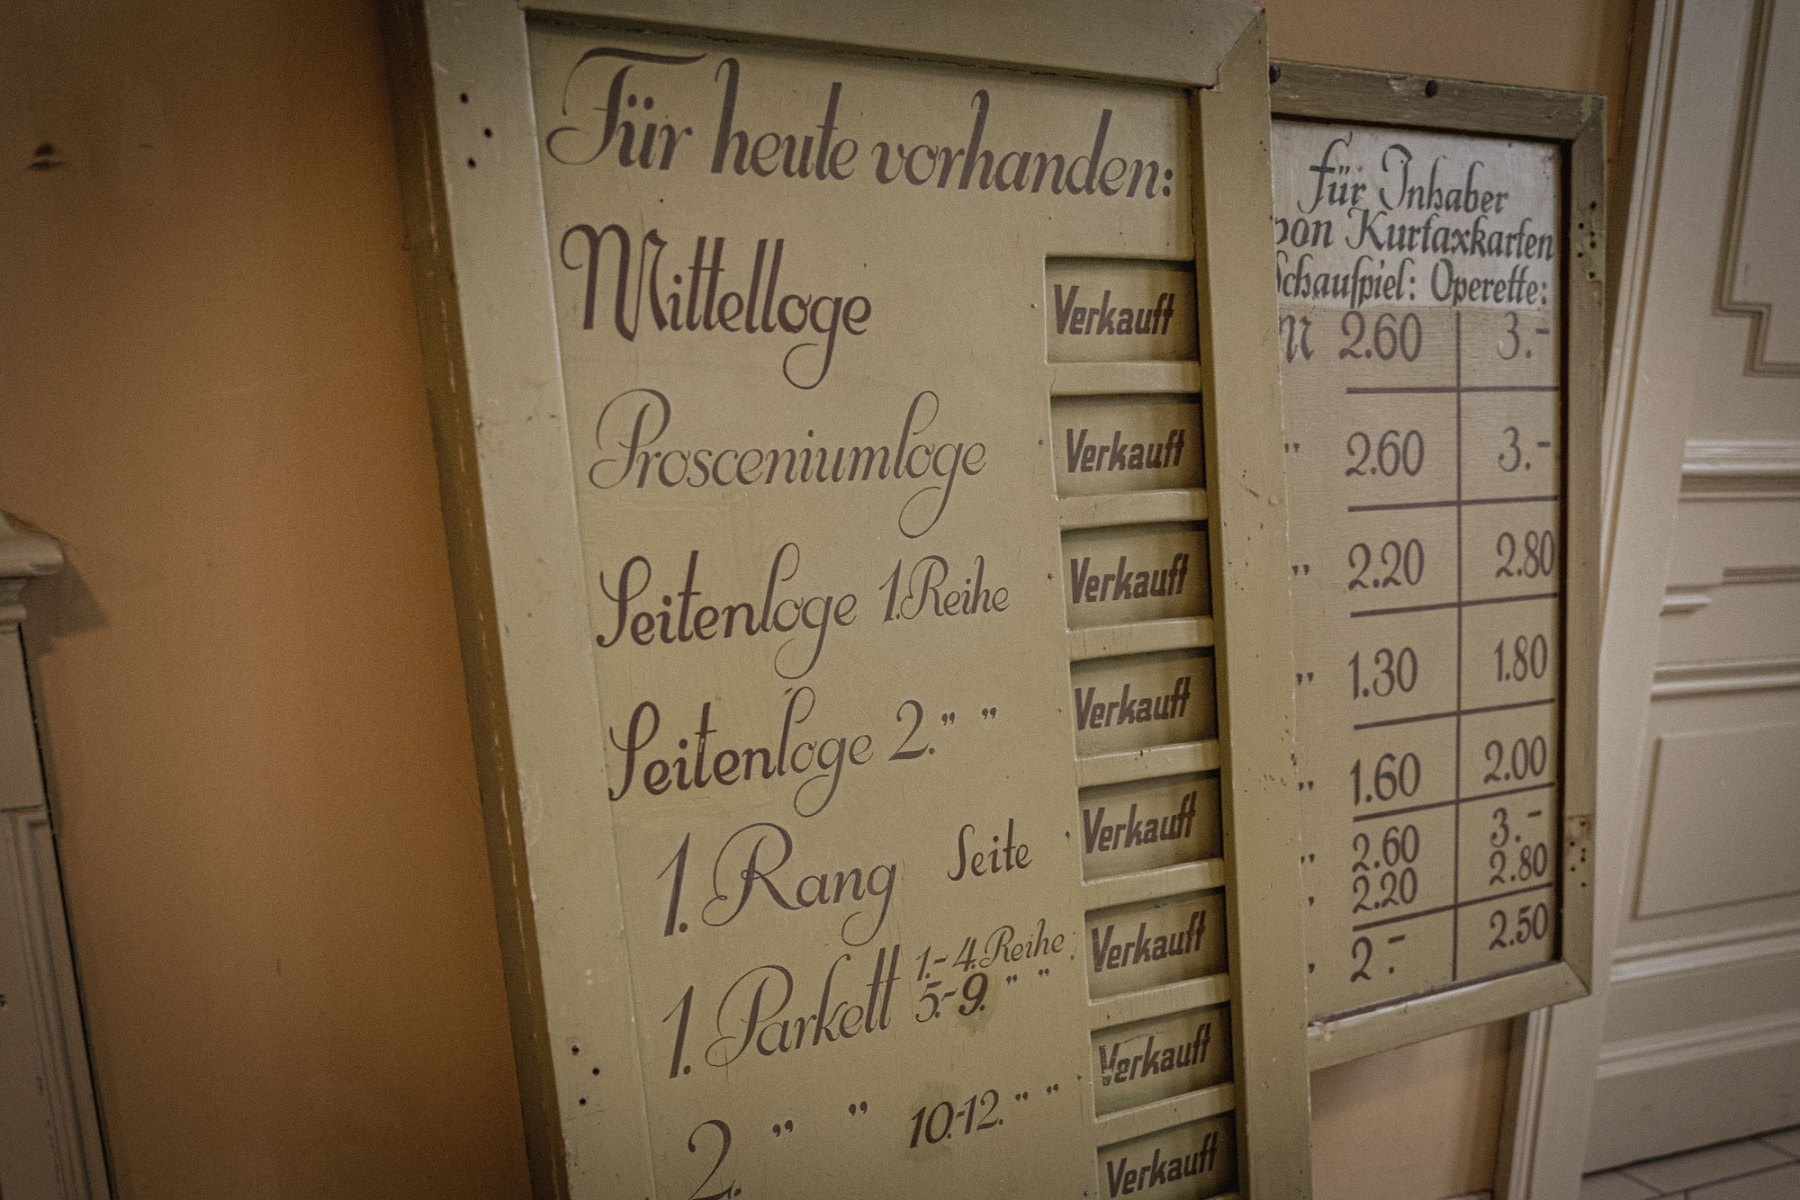 Für heute vorhanden:
Mittelloge Verkauft
Prosceniumloge Verkauft
Seitenloge 1. Reihe Verkauft
Seitenloge 2. " " Verkauft
1. Rang Seite Verkauft
1. Parkett 1.-4. Reihe Verkauft
5.-9. " " Verkauft
2. " " 10.-12. " " Verkauft
für Inhaber
von Kurtaxkarten
Schauſpiel: Operette:
M 2.60 3.-
" 2.60 3.-
" 2.20 2.80
" 1.30 1.80
" 1.60 2.00
" 2.60 3.-
" 2.20 2.80
" 2.- 2.50